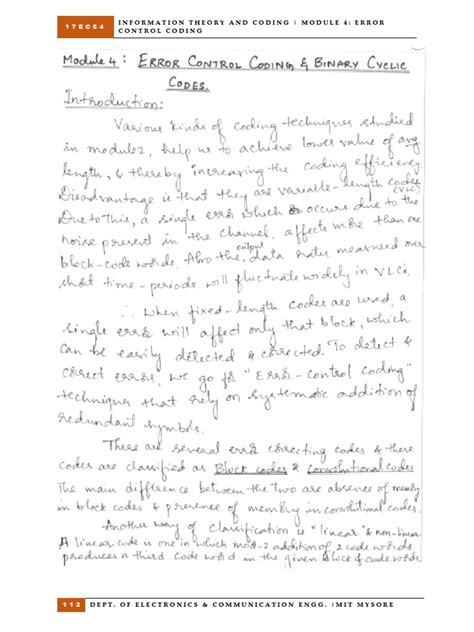 17EC54
INFORMATION THEORY AND CODING | MODULE 4: ERROR
CONTROL CODING
Module 4 : ERROR CONTROL CODING & BINARY CYCLIC
CODES.
Introduction:
Various kinds of coding techniques studied
in module2, help us to achieve lower value of avg
length, & thereby increasing the coding efficiency.
Disadvantage is that they are variable-length codes
(VLC)
Due to this, a single error which occurs due to the
noise present in the channel, affects more than one
block-code words. Also the, output data rates measured over
short time-periods will fluctuate widely in VLCs.
∴ When fixed-length codes are used, a
single error will affect only that block, which
can be easily detected & corrected. To detect &
correct errors, we go for "Error-control coding"
techniques that rely on systematic addition of
redundant symbols.
There are several error correcting codes & these
codes are classified as Block codes & Convolutional codes
The main difference between the two are absence of memory
in block codes & presence of memory in convolutional codes.
Another way of classification is "linear" & non-linear
A linear code is one in which mod-2 addition of 2 code words
produces a third code word in the given block of code words.
112 DEPT. OF ELECTRONICS & COMMUNICATION ENGG. |MIT MYSORE